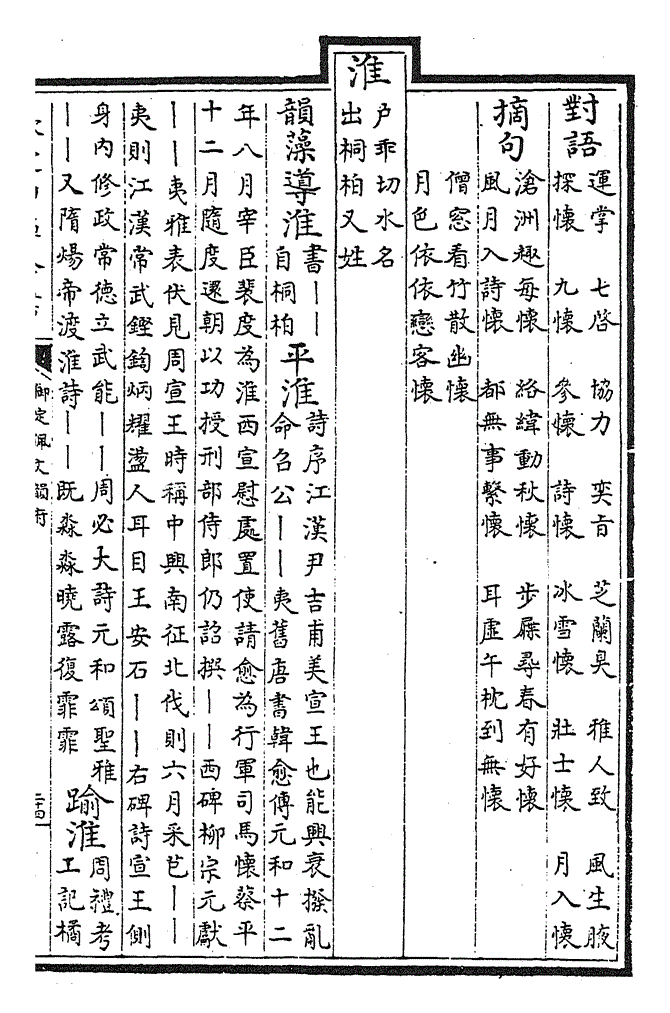 對語
運掌 七啓 協力 奕旨 芝蘭臭 雅人致 風生腋
探懷 九懷 參懷 詩懷 冰雪懷 壯士懷 月入懷
摘句
滄洲趣每懷 絡緯動秋懷 步屧尋春有好懷
風月入詩懷 都無事繫懷 耳虛午枕到無懷
僧窓看竹散幽懷
月色依依戀客懷
淮
户乖切水名
出桐柏又姓
韻藻導淮
書——
自桐柏
平淮
詩序江漢尹吉甫美宣王也能興衰撥亂
命召公——夷舊唐書韓愈傳元和十二
年八月宰臣裴度為淮西宣慰處置使請愈為行軍司馬懷蔡平
十二月隨度還朝以功授刑部侍郎仍詔撰——西碑柳宗元獻
——夷雅表伏見周宣王時稱中興南征北伐則六月采芑——
夷則江漢常武鏗鍧炳耀盪人耳目王安石——右碑詩宣王側
身內修政常德立武能——周必大詩元和頌聖雅
——又隋煬帝渡淮詩——既淼淼曉露復霏霏
踰淮
周禮考
工記橘
御定佩文韻府
二十四